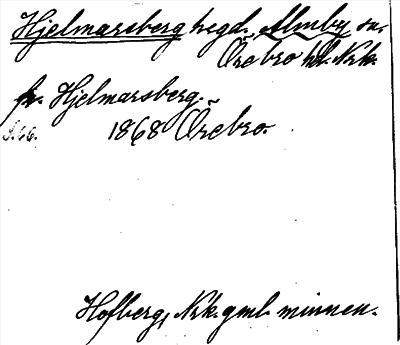 Hjelmarsberg hrgd. Almby sn.
Örebro hd. Nrk.
fr. Hjelmarsberg.
S. 66. 1868 Örebro.
Hofberg, Nrk. gml. minnen.